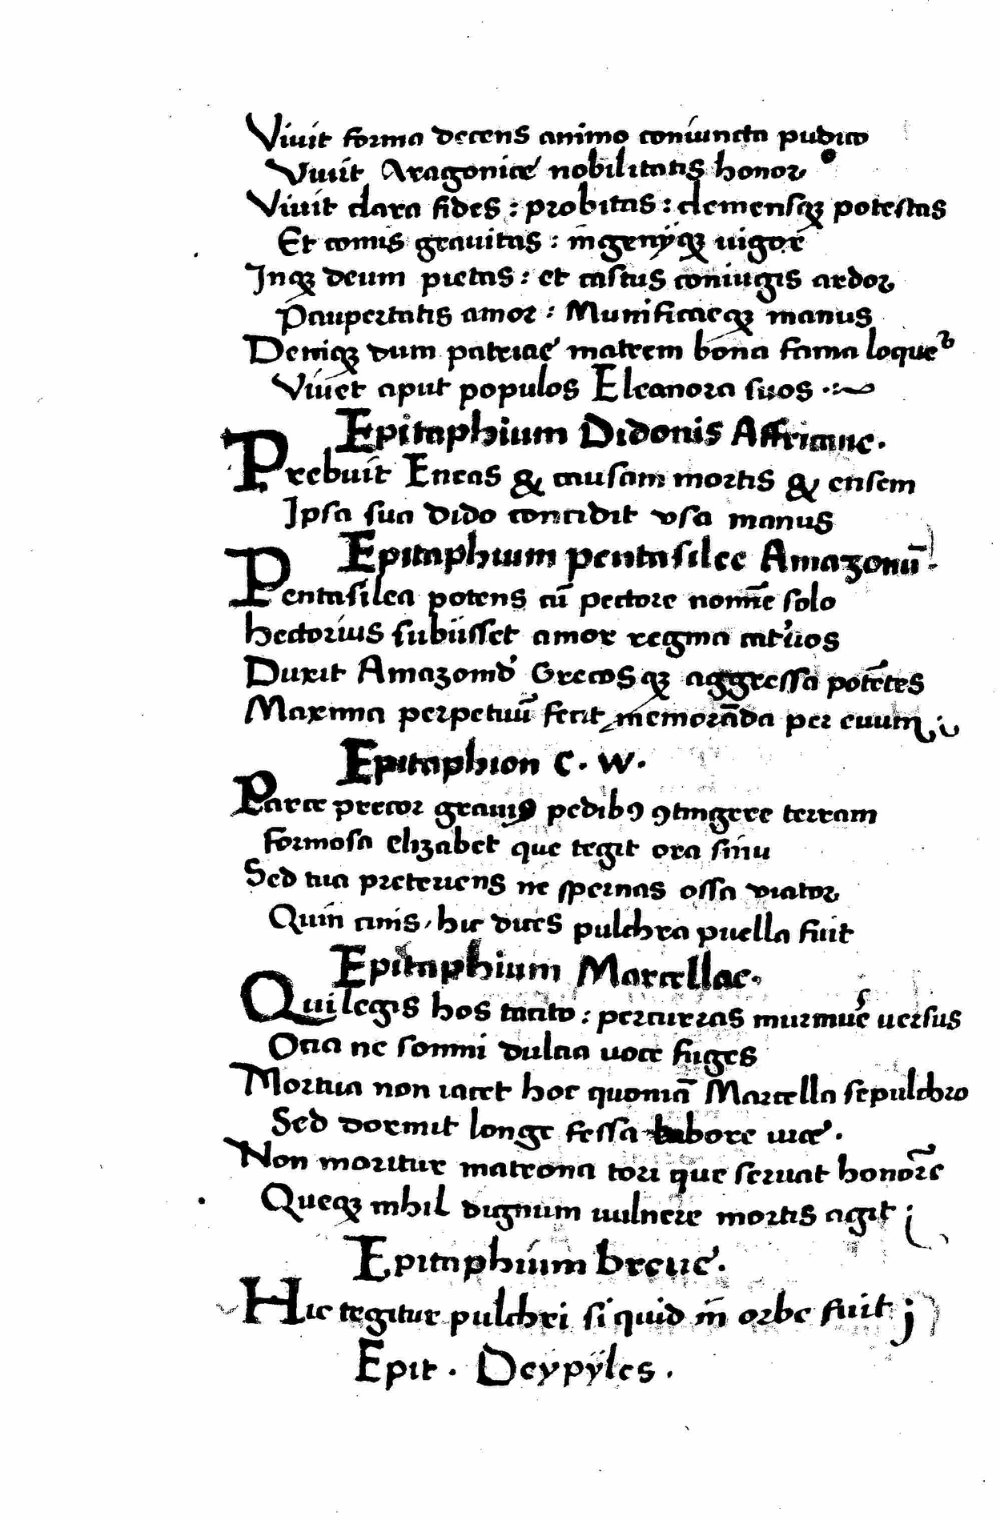 Viuit forma decens animo coniuncta pudico
Viuit Aragonice nobilitatis honor
Viuit clara fides : probitas : clemensqꝫ potestas
Et comis grauitas : īngenijqꝫ uigor
Inqꝫ deum pietas : et castus coniugis ardor
Paupertatis amor : Munificaeqꝫ manus
Deniqꝫ dum patriae matrem bona fama loque
Viuet aput populos Eleanora suos
Epitaphium Didonis Affricane.
Prebuit Eneas & causam mortis & ensem
Ipsa sua dido concidit vsa manus
Epitaphium pentasilee Amazonū
Pentasilea potens cū pectore nomīe solo
hectorius subiisset amor regina cat'uos
Duxit Amazond' Grecosqꝫ aggressa potētes
Maxima perpetuū fecit memorāda per euum
Epitaphion C. W.
Parce precor grauiꝰ pedibꝰ ꝯtingere terram
formosa elizabet que tegit ora sinu
Sed tua preteriens ne spernas ossa viator
Quin cinis, hic dices pulchra puella fuit
Epitaphium Marcellae.
Qui legis hos tacito : percurras murmure uersus
Ocia ne somni dulcia uoce fuges
Mortua non iacet hoc quoniā Marcella sepulchro
Sed dormit longe fessa labore uice.
Non moritur matrona tori que seruat honorē
Queqꝫ nihil dignum uulnere mortis agit
Epitaphium breue.
Hic tegitur pulchri si quid īn orbe fuit
Epit. Deypyles.